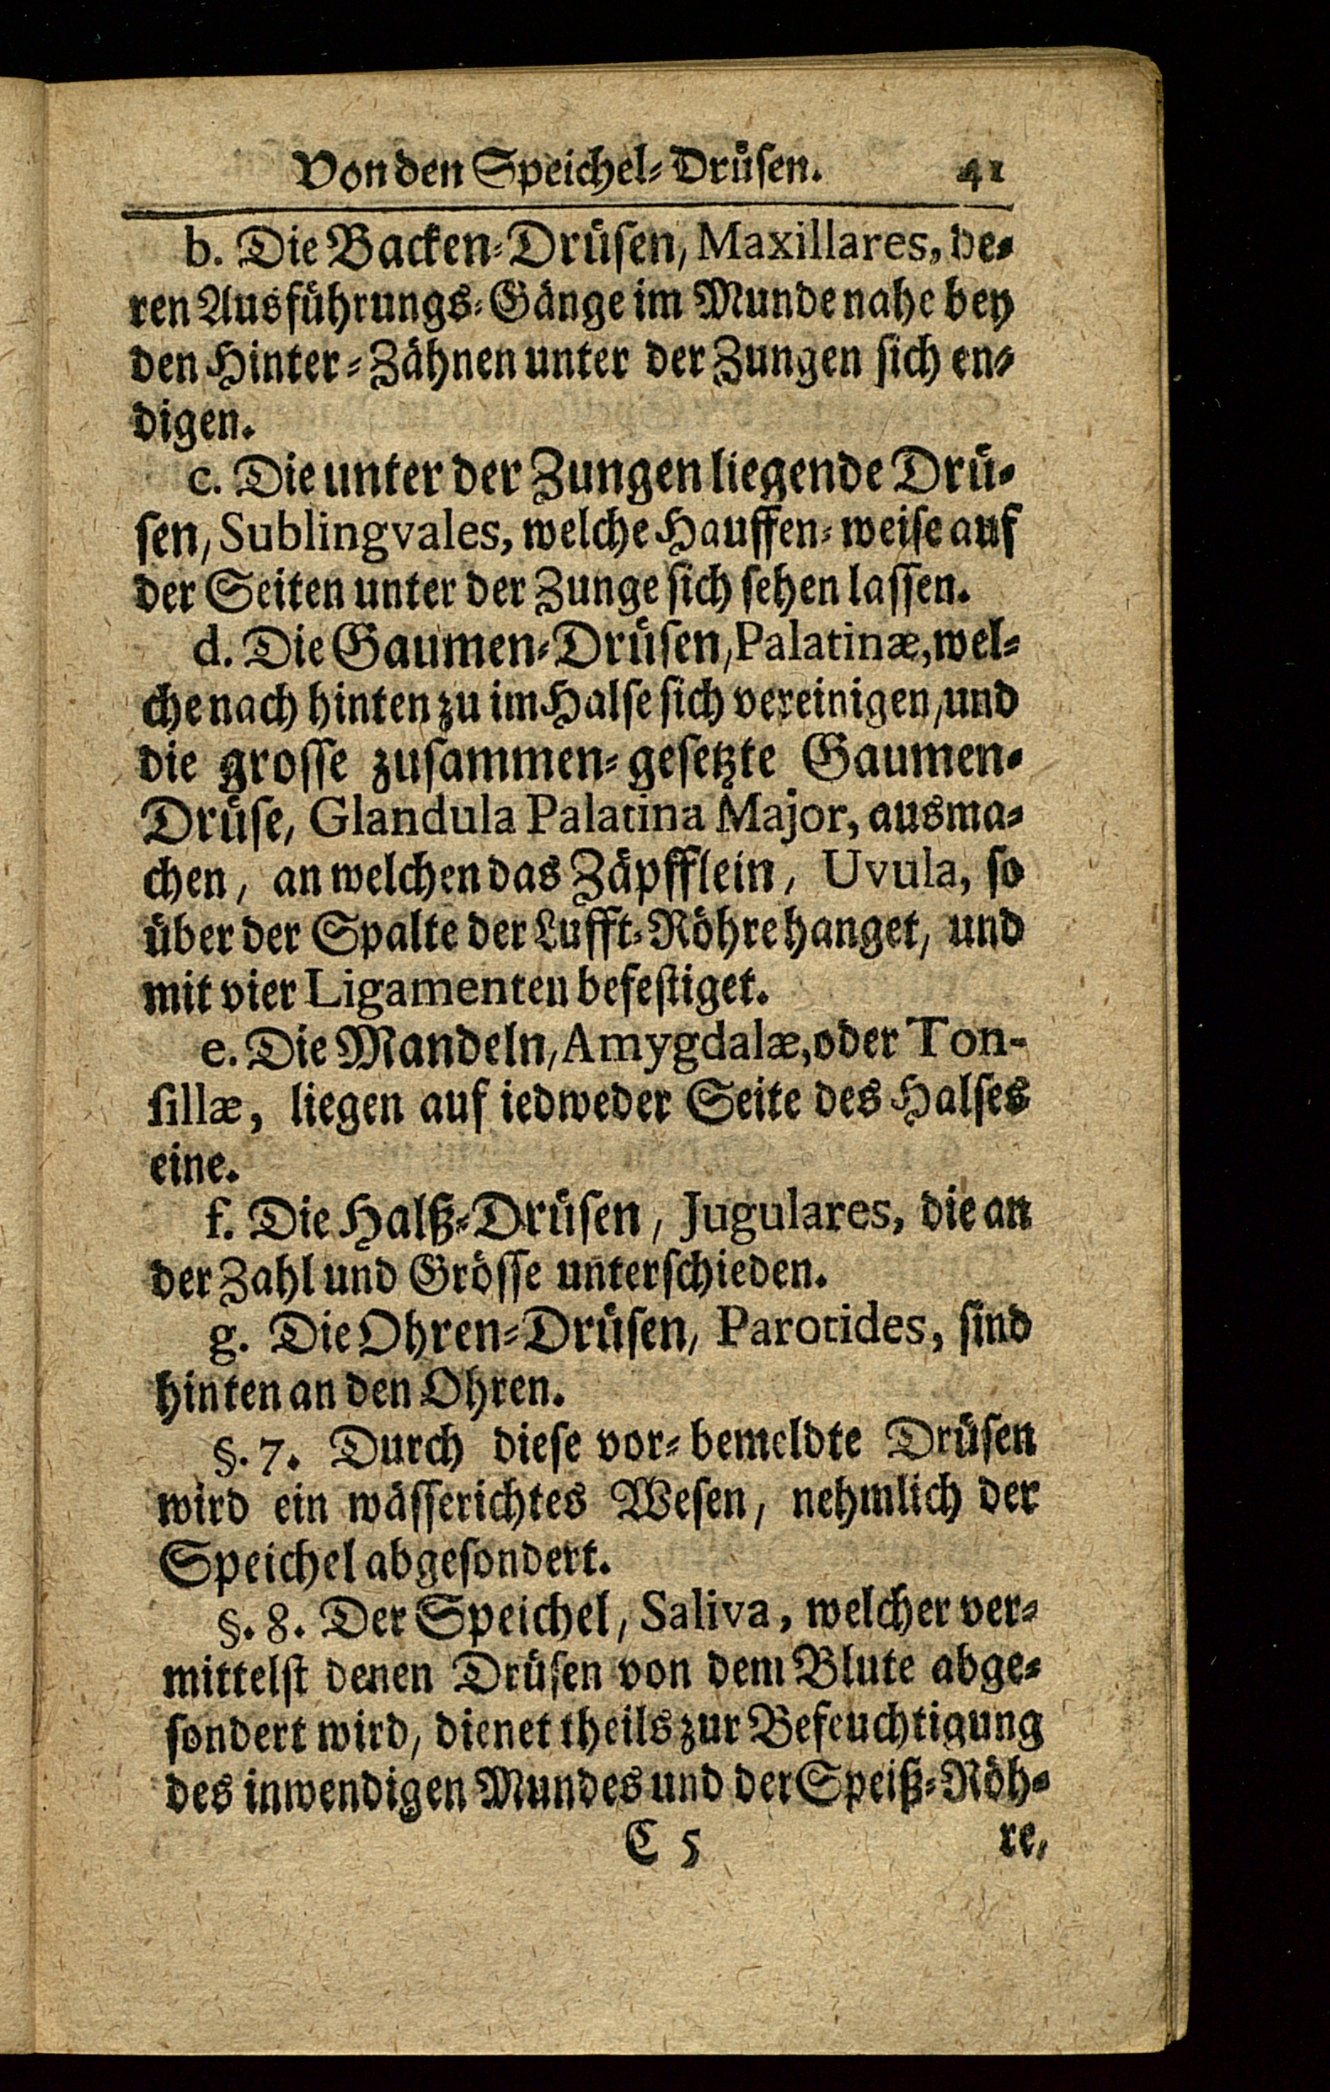 Von den Speichel-Drüsen. 41
b. Die Backen-Drüsen, Maxillares, de-
ren Ausführungs-Gänge im Munde nahe bey
den Hinter-Zähnen unter der Zungen sich en-
digen.
c. Die unter der Zungen liegende Drü-
sen, Sublingvales, welche Hauffen-weise auf
der Seiten unter der Zunge sich sehen lassen.
d. Die Gaumen-Drüsen, Palatinæ, wel-
che nach hinten zu im Halse sich vereinigen, und
die grosse zusammen-gesetzte Gaumen-
Drüse, Glandula Palatina Major, ausma-
chen, an welchen das Zäpfflein, Uvula, so
über der Spalte der Lufft-Röhre hanget, und
mit vier Ligamenten befestiget.
e. Die Mandeln, Amygdalæ, oder Ton-
sillæ, liegen auf iedweder Seite des Halses
eine.
f. Die Halß-Drüsen, Jugulares, die an
der Zahl und Grösse unterschieden.
g. Die Ohren-Drüsen, Parotides, sind
hinten an den Ohren.
§. 7. Durch diese vor-bemeldte Drüsen
wird ein wässerichtes Wesen, nehmlich der
Speichel abgesondert.
§. 8. Der Speichel, Saliva, welcher ver-
mittelst denen Drüsen von dem Blute abge-
sondert wird, dienet theils zur Befeuchtigung
des inwendigen Mundes und der Speiß-Röh-
C 5 re,